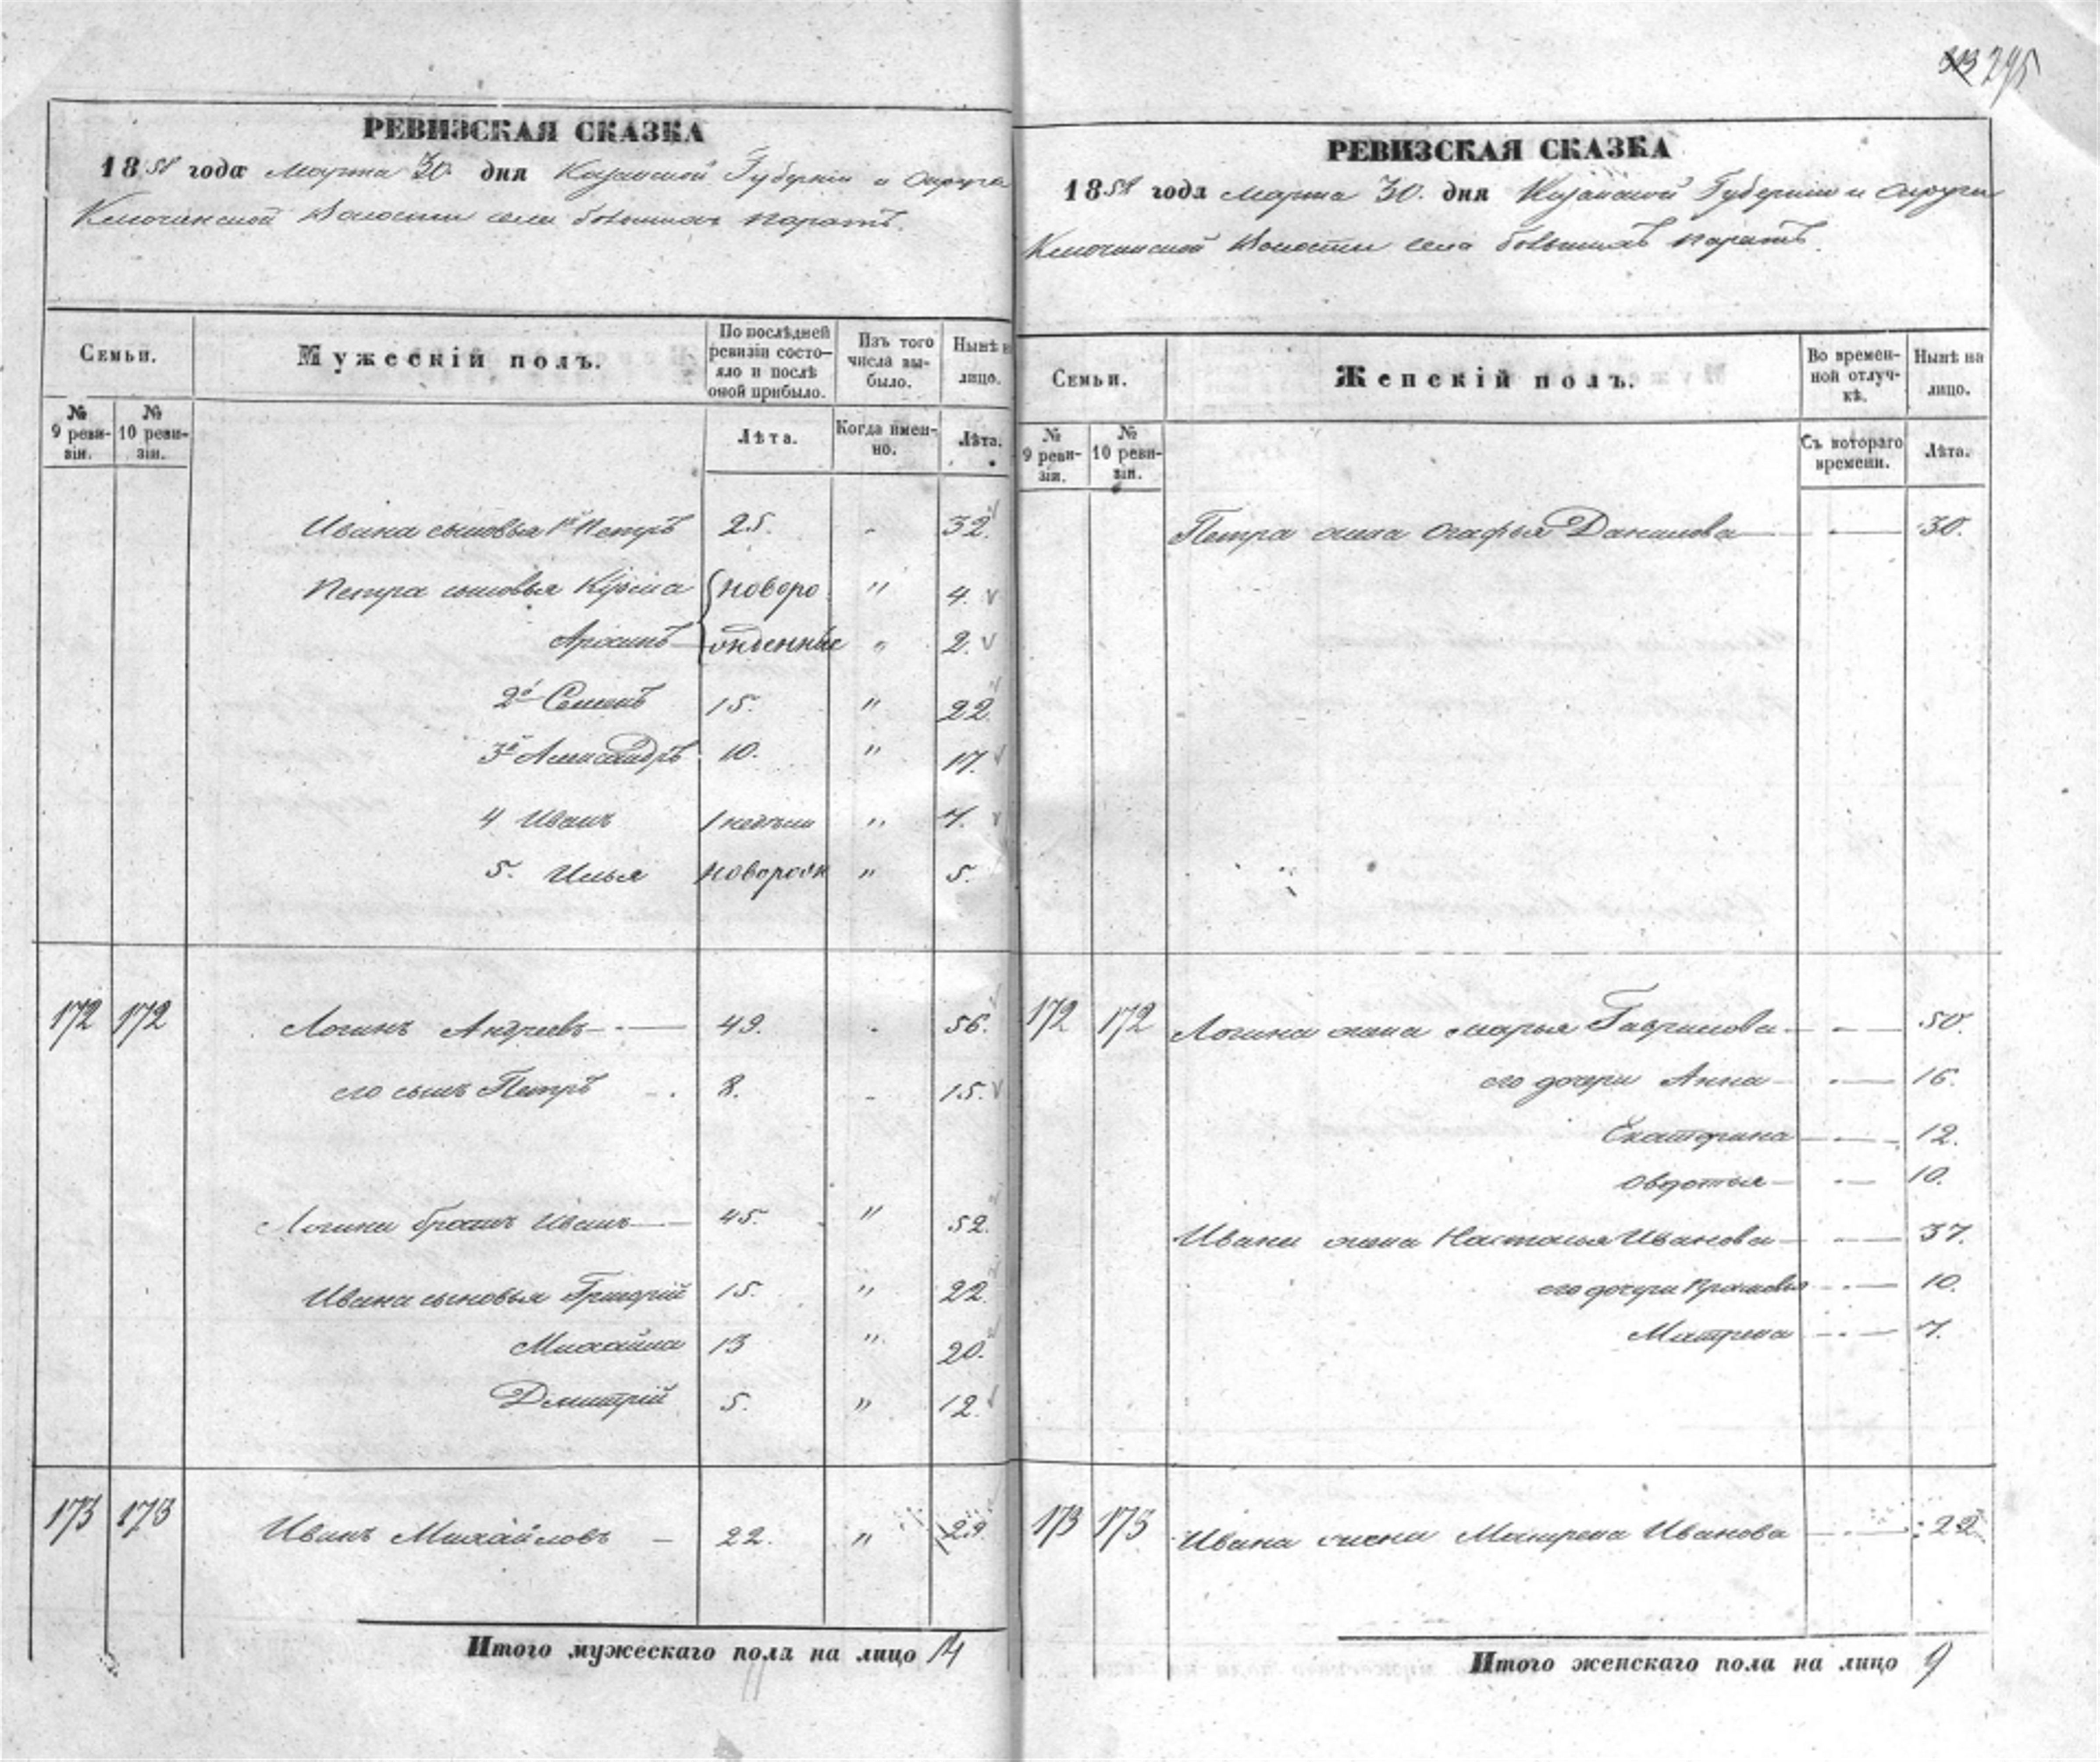 295
РЕВИЗСКАЯ СКАЗКА
1858 года Марта 30. дня Казанской Губернии и Округа
Ключинской Волости села большихъ паратъ.
Семьи.
Мужескій полъ.
По послѣдней ревизіи состо-
яло и послѣ оной прибыло.
Изъ того числа вы-
было.
Нынѣ на лицо.
№ 9 реви-
зіи.
№ 10 реви-
зіи.
Лѣта.
Когда имен-
но.
Лѣта.
Ивана сыновья 1й Петръ 25. - 32.
Петра сыновья Кузма новоро " 4.
жденные " 2.
2й Семенъ 15. " 22.
3й Александръ 10. " 17.
4 Иванъ 1 недѣли " 7.
5. Ильяноворож " 5.
172 172 Логинъ Андреевъ 49. - 56.
его сынъ Петръ 8. - 15.
Логина братъ Иванъ 45. " 52.
Ивана сыновья Григорій 15. " 22.
Михайла 13 " 20.
Дмитрій 5. " 12.
173 173 Иванъ Михайловъ 22. " 29.
Итого мужескаго пола на лицо 14
РЕВИЗСКАЯ СКАЗКА
1858 года Марта 30. дня Казанской Губернии и Округи
Ключинской Волости села большихъ паратъ.
Семьи.
Женскій полъ.
Во времен-
ной отлуч-
кѣ.
Нынѣ на лицо.
№ 9 реви-
зіи.
№ 10 реви-
зіи.
Съ котораго времени.
Лѣта.
Петра жена Огафья Данилова 30.
172 172 Логина жена Марья Гаврилова 50.
его дочери Анна 16.
Екатерина 12.
Овдотья 10.
Ивана жена Настасья Иванова 37.
его дочери Прасковья 10.
Матрена 7.
173 173 Ивана жена Матрена Иванова 22
Итого женскаго пола на лицо 9